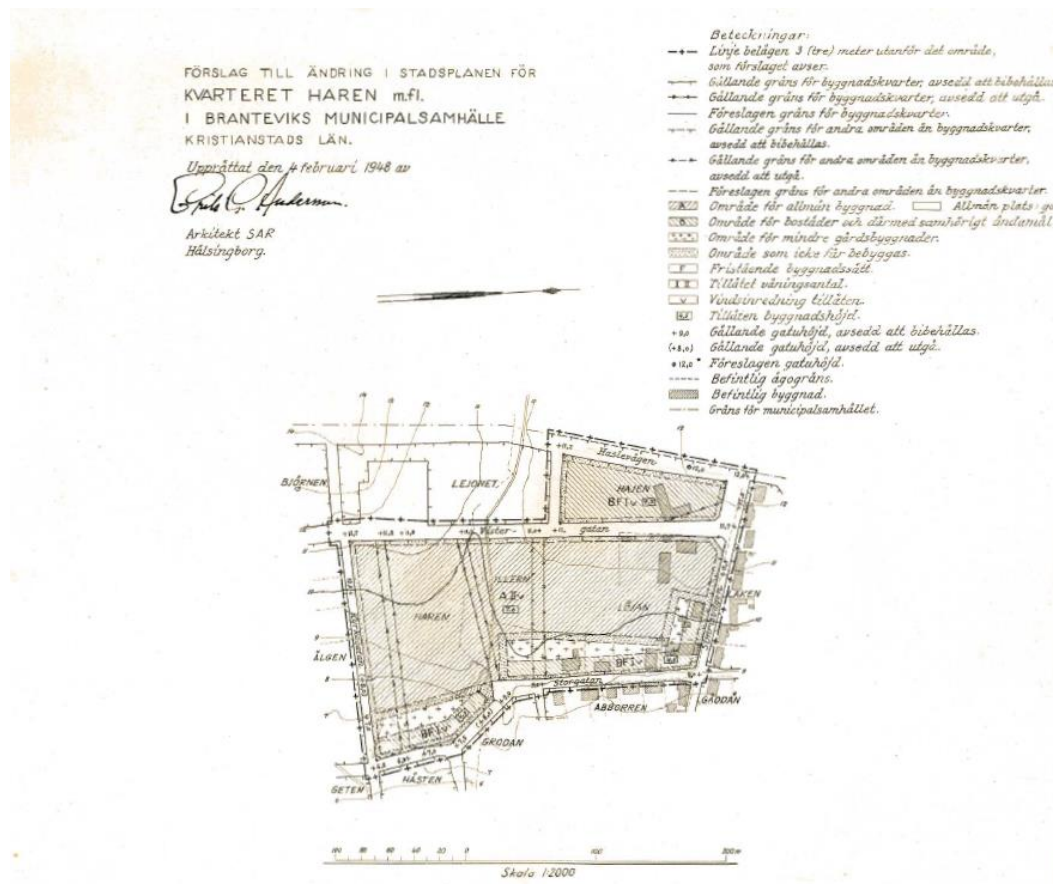 FÖRSLAG TILL ÄNDRING I STADSPLANEN FÖR
KVARTERET HAREN m.fl.
I BRANTEVIKS MUNICIPALSAMHÄLLE
KRISTIANSTADS LÄN.
Upprättat den 4 februari 1948 av
Arkitekt SAR
Hälsingborg.
Beteckningar:
Linje belägen 3 (tre) meter utanför det område,
som förslaget avser.
Gällande gräns för byggnadskvarter, avsedd att bibehållas
Gällande gräns för byggnadskvarter, avsedd att utgå.
Föreslagen gräns för byggnadskvarter.
Gällande gräns för andra områden än byggnadskvarter,
avsedd att bibehållas.
Gällande gräns för andra områden än byggnadskvarter,
avsedd att utgå.
Föreslagen gräns för andra områden än byggnadskvarter.
A Område för allmän byggnad. Allmän plats:
B Område för bostäder och därmed samhörigt ändamål
Område för mindre gårdsbyggnader.
Område som icke får bebyggas.
F Fristående byggnadssätt.
I II Tillåtet våningsantal.
v Vindsinredning tillåten.
Tillåten byggnadshöjd.
+9,0 Gällande gatuhöjd, avsedd att bibehållas.
(+8,0) Gällande gatuhöjd, avsedd att utgå.
12,0 Föreslagen gatuhöjd.
Befintlig ägogräns.
Befintlig byggnad.
Gräns för municipalsamhället.
Haslevägen
BJÖRNEN
LEJONET.
HAJEN
BFIv
Väster-
gatan
ILLERN
A II v
HAREN
LÖJAN
ÄLGEN
BFIv
Storgatan
ABBORREN
GÄDDAN
BFIv
GRODAN
HÄSTEN
GETEN
100 80 60 40 20 0 100 200 m
Skala 1:2000